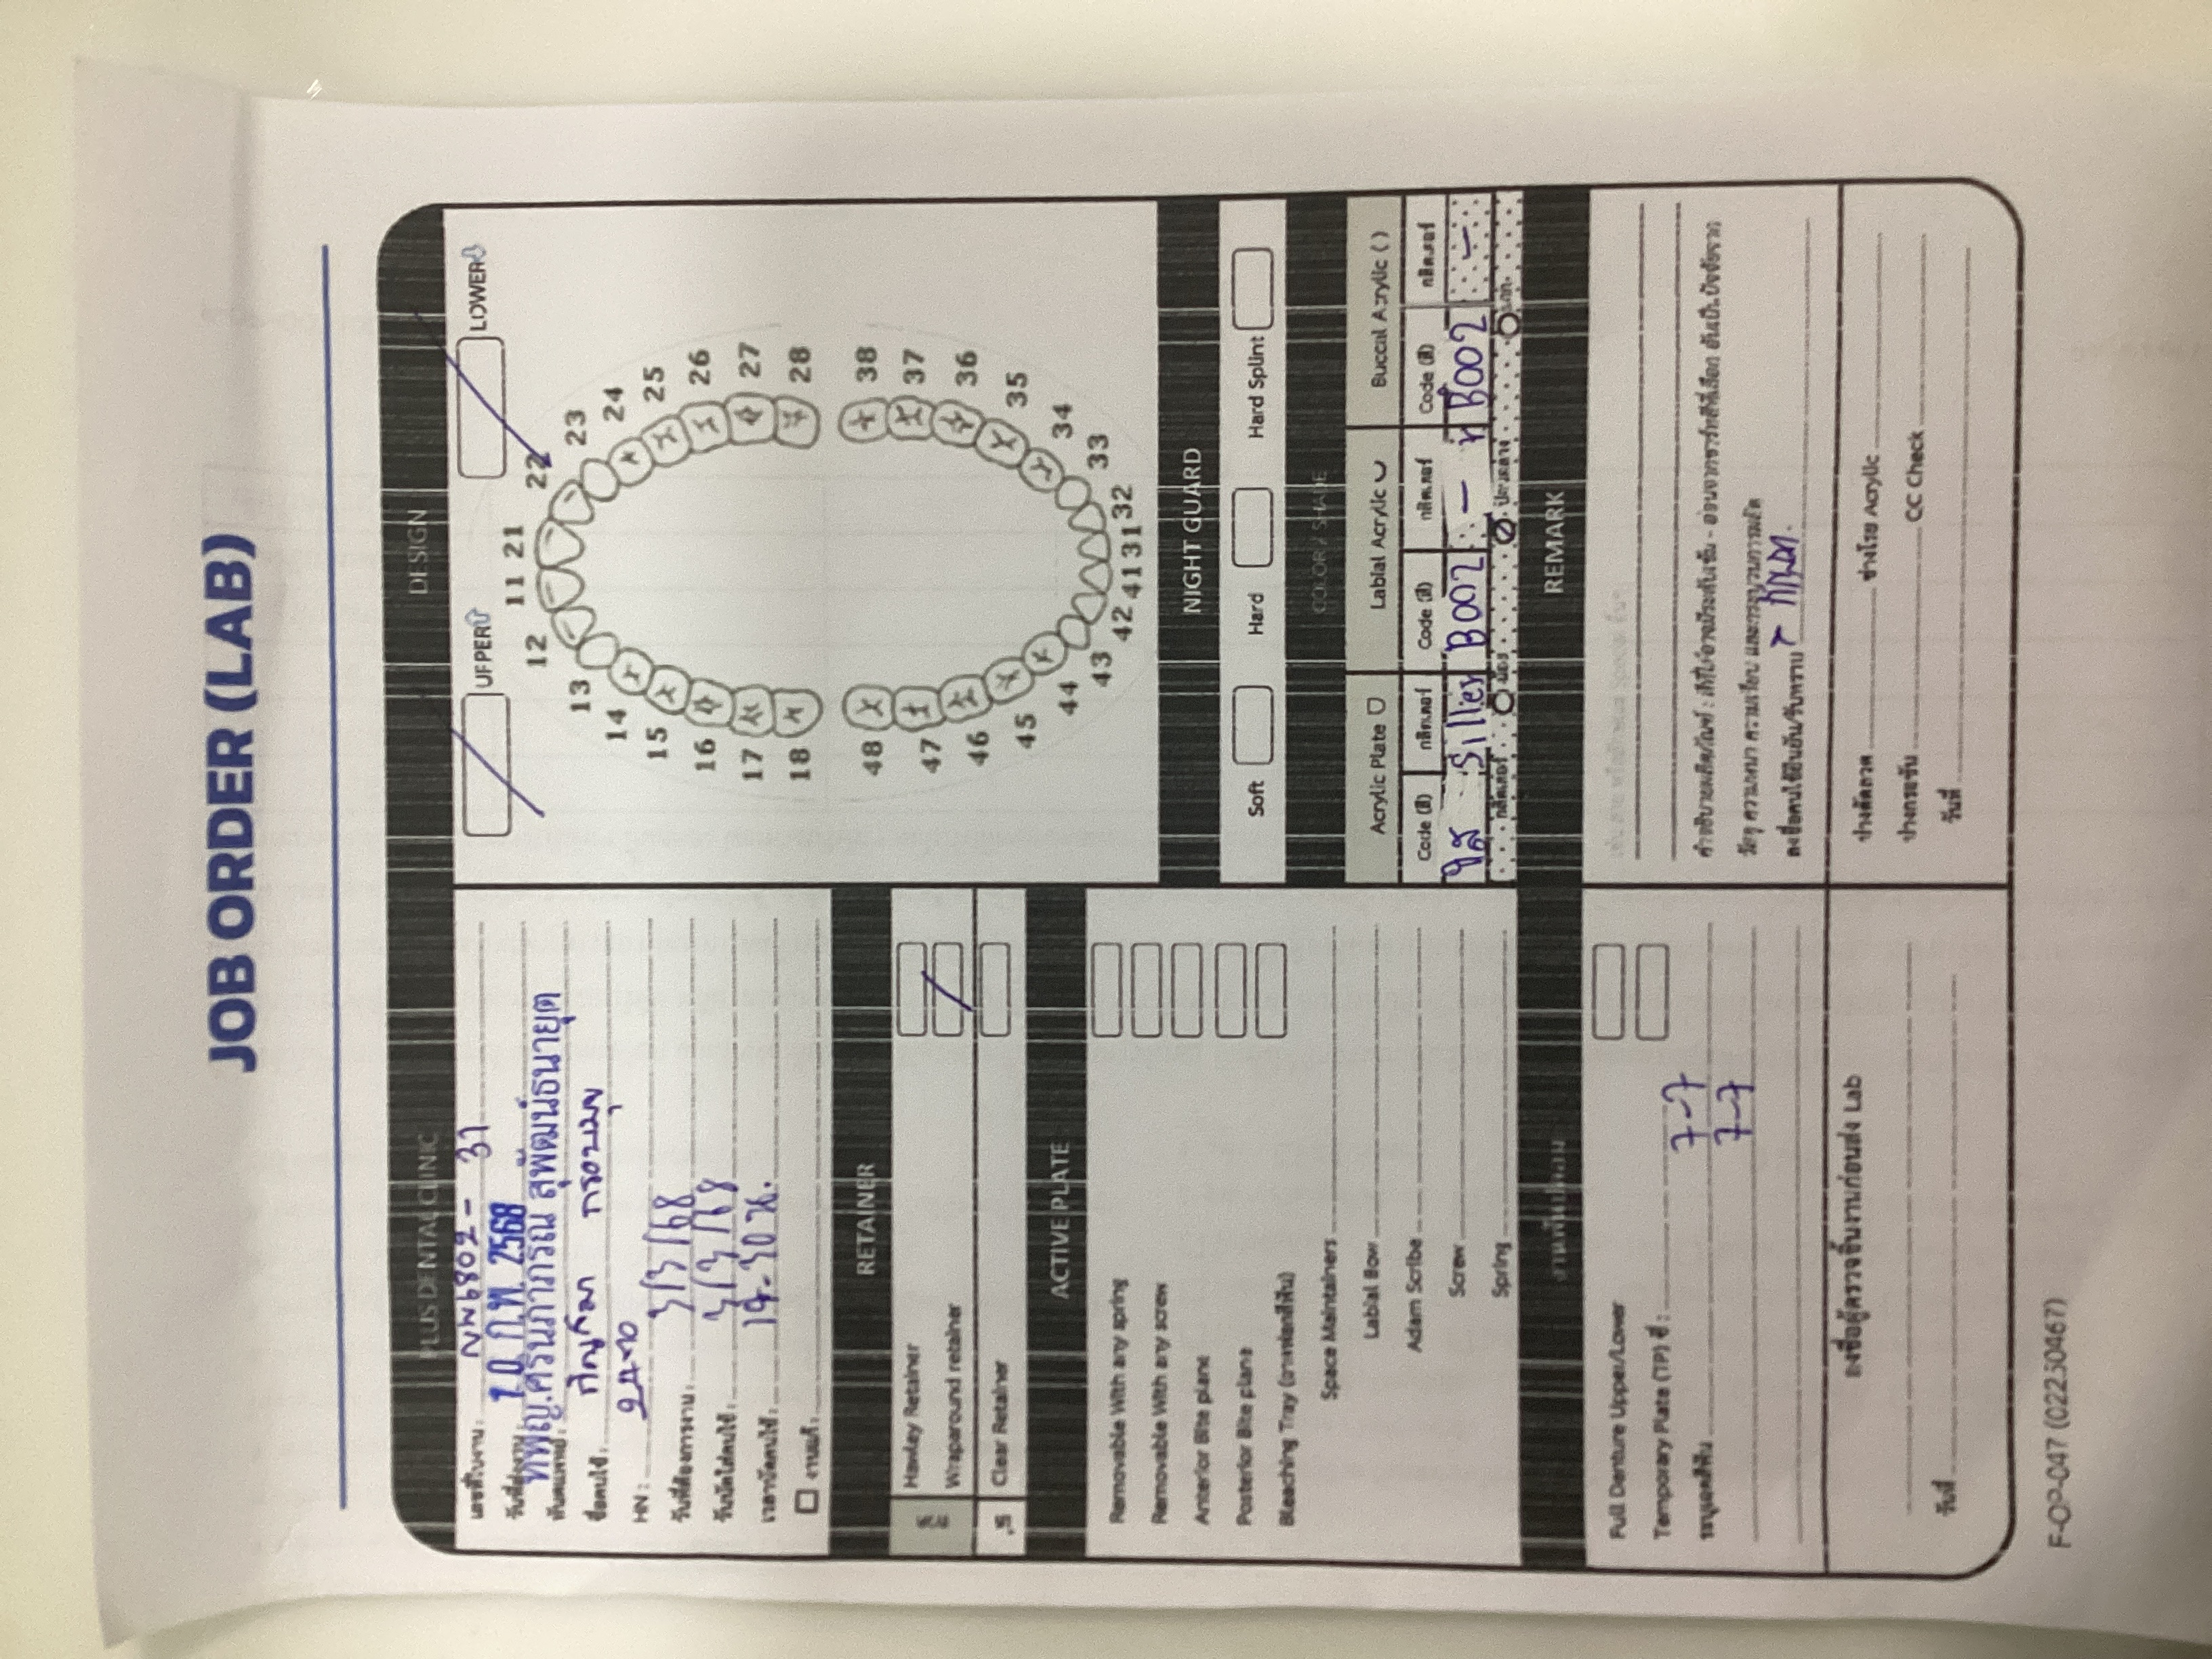 JOB ORDER (LAB)
PLUS DENTAL CLINIC
เลขที่ใบงาน : NW6802 - 31
วันที่ส่งงาน : 10 ก.พ. 2568
ทันตแพทย์ : ทพญ.ศรินภาภรณ์ สุพัฒน์ธนายุต
ชื่อคนไข้ :
HN :
วันที่ต้องการงาน : 3/3/68
วันนัดใส่คนไข้ : 3/3/68
เวลานัดคนไข้ :
งานแก้ :
RETAINER
ลวด
Hawley Retainer
Wraparound retainer
ใส
Clear Retainer
ACTIVE PLATE
Removable With any spring
Removable With any screw
Anterior Bite plane
Posterior Bite plane
Bleaching Tray (ถาดฟอกสีฟัน)
Space Maintainers
Labial Bow
Adam Scribe
Screw
Spring
งานฟันปลอม
Full Denture Upper/Lower
Temporary Plate (TP) ซี่ :
7-7
ระบุเฉดสีฟัน
7-7
ลงชื่อผู้ตรวจชิ้นงานก่อนส่ง Lab
วันที่
DESIGN
UPPER LOWER
11 21
12 22
13 23
14 24
15 25
16 26
17 27
18 28
48 38
47 37
46 36
45 35
44 34
43 33
42 41 31 32
NIGHT GUARD
Soft Hard Hard Splint
COLOR / SHADE
Acrylic Plate Labial Acrylic Buccal Acrylic ( )
Code (สี) กลิตเตอร์ Code (สี) กลิตเตอร์ Code (สี) กลิตเตอร์
ใส Siller B002 - B002 -
กลิตเตอร์ น้อย ปานกลาง มาก
REMARK
คำอธิบายผลิตภัณฑ์ : สีที่ได้อาจมีระดับเข้ม - อ่อนจากชาร์ทสีที่เลือก อันเป็นปัจจัยจาก
วัสดุ ความหนา ความเรียบ และกระบวนการผลิต
ลงชื่อคนไข้ยืนยัน/รับทราบ
ช่างดัดลวด ช่างโรย Acrylic
ช่างกรอขัด CC Check
วันที่
F-OP-047 (02250467)